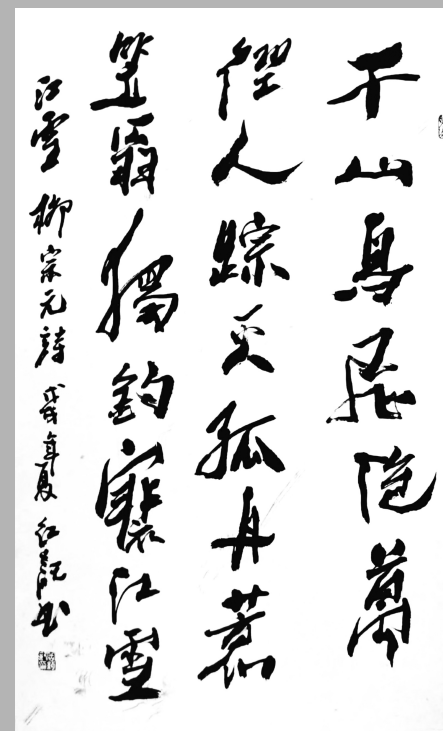 千山鳥飛绝萬
徑人踪灭孤舟蓑
笠翁獨釣寒江雪
江雪 柳宗元詩 年夏 书